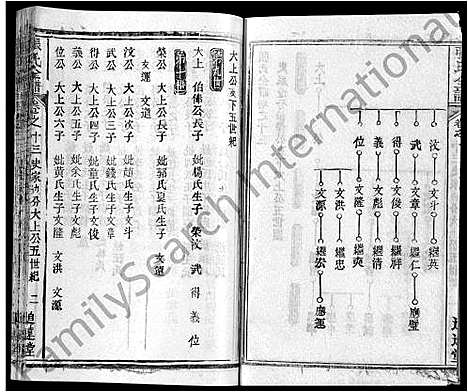 汶 文斗 繼英
武 文章 繼仁 應璧
得 文俊 繼祥
義 文彪 繼清
位 文隆 繼奐
文洪 繼忠
文源 繼宏 應運
大上公 下五世紀
大上 伯 公長子 妣楊氏生子 榮 汶 武 得 義 位
榮公 大上公長子 妣郭氏 氏生子
文運 文道
汶公 大上公次子 妣 氏生子文斗
武公 大上公三子 妣錢氏生子文章
得公 大上公四子 妣童氏生子文俊
義公 大上公五子 妣余氏生子文彪
位公 大上公六子 妣黃氏生子文隆 文洪 文源
張氏宗譜 卷之十三 史家 分大上公五世紀 二
FamilySearch International